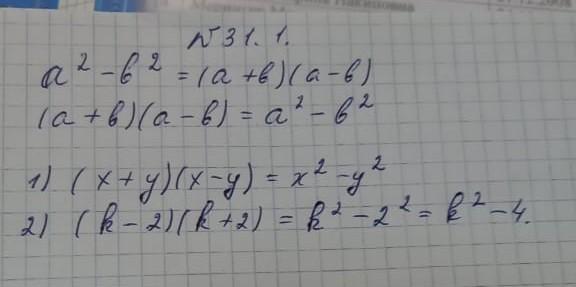 №31.1.
a² - b² = (a + b)(a - b)
(a + b)(a - b) = a² - b²
1) (x + y)(x - y) = x² - y²
2) (k - 2)(k + 2) = k² - 2² = k² - 4.